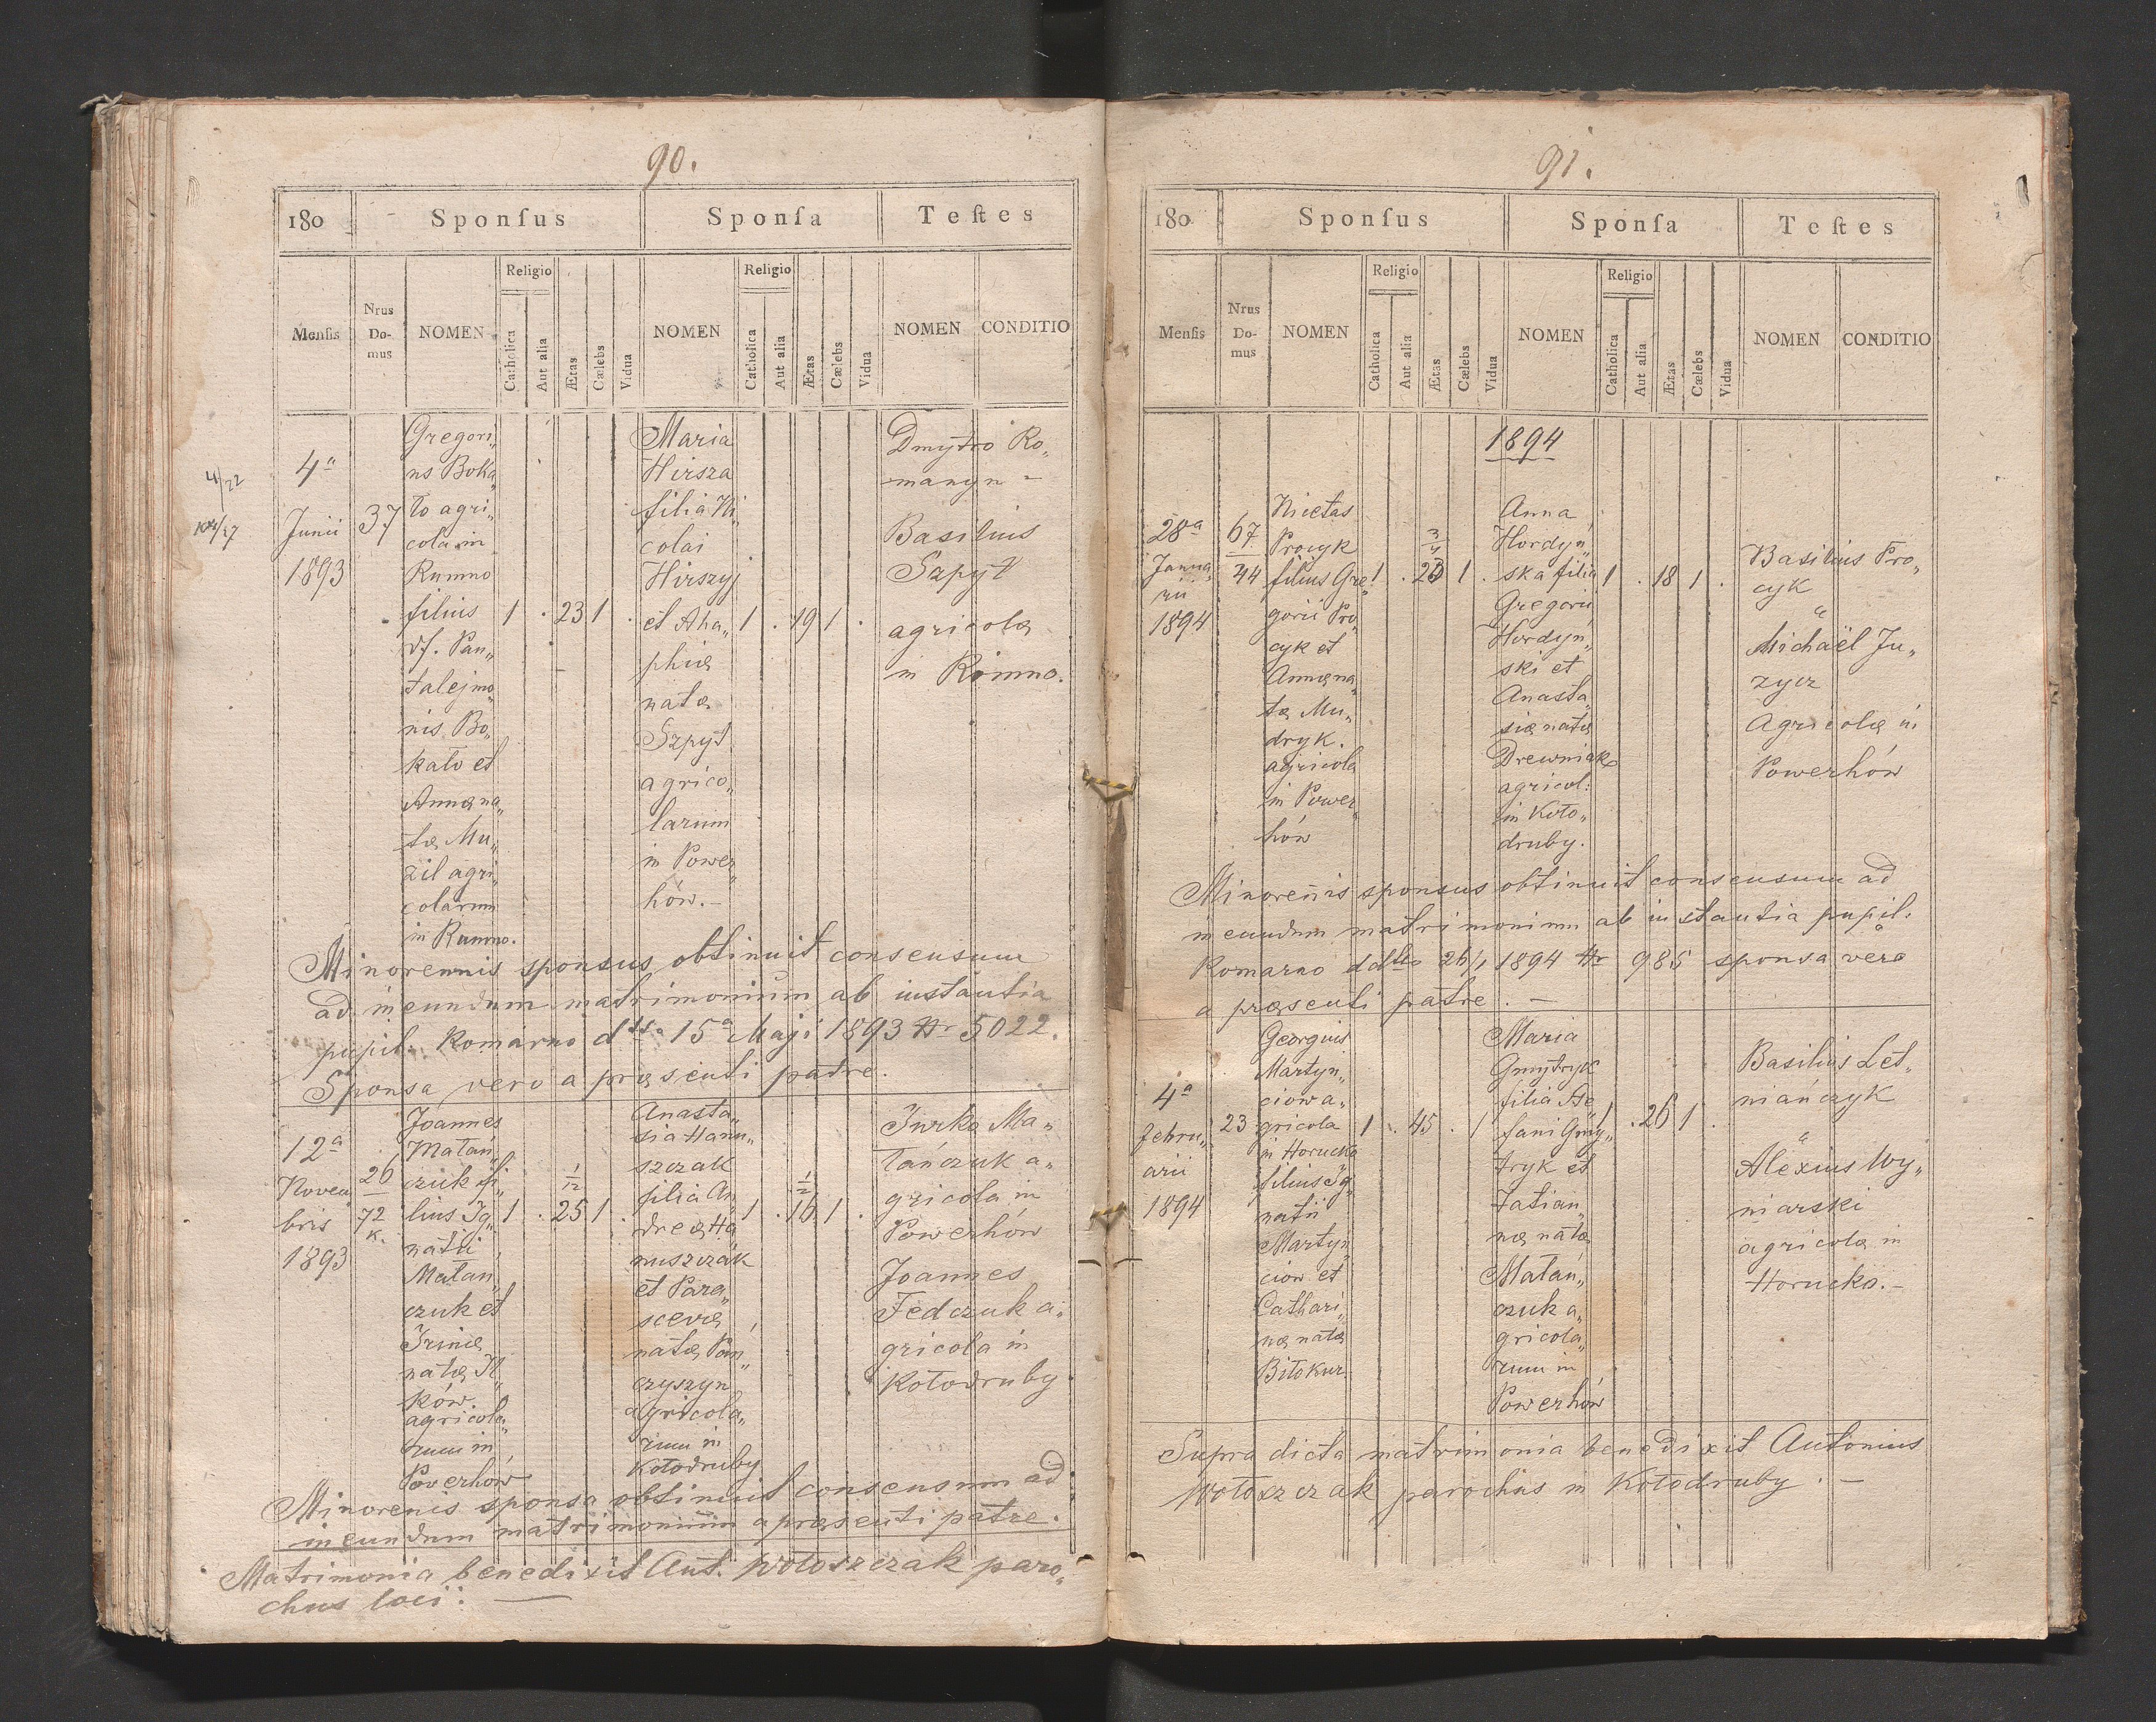 90.
180 Sponſus Sponſa Teſtes
Menſis Nrus Do-mus NOMEN Religio Catholica Aut alia Ætas Cælebs Vidua NOMEN Religio Catholica Aut alia Ætas Cælebs Vidua NOMEN CONDITIO
4/22
4ª
Junii
1893
37
Gregori„
us Boka„
to agri„
cola in
Rumno
filius
Pan„
talejmo„
nis Bo„
kato et
Annæ na„
tæ Mu„
zil agri„
colarum
in Rumno.
1 . 23 1 .
Maria
Hirsza
filia Ni„
colai
Hirszyj
et Aha„
phiæ
natæ
Szpyt
agrico„
larum
in Power„
hów.–
1 . 19 1 .
Dmytro Ro„
manyn –
Basilius
Szpyt
agricolæ
in Rómno.
Minorennis sponsus obtinuit consensum
ad ineundum matrimonium ab instantia
pupil. Komarno dtto 15ª Maji 1893 Nr 5022.
Sponsa vero a præsenti patre.
12ª
Novem
bris
1893
26
72
k.
Joannes
Matań„
czuk fi„
lius Ig„
natii
Matań„
czuk et
Irinæ
natæ Il„
ków.
agricola„
rum in
Powerhów
1 . 25 1/12 1 .
Anasta„
sia Hanu„
szczak
filia An„
dreæ Ha„
nuszczak
et Para„
scevæ
natæ Pan„
czyszyn
agricola„
rum in
Kołodruby
1 . 16 1/2 1 .
Jurko Ma„
tańczuk a„
gricola in
Powerhów
Joannes
Fedczuk a„
gricola in
Kołodruby
Minorenis sponsa obtinuit consensum ad
ineundum matrimonium a præsenti patre.
Matrimonia benedixit Ant. Wołoszczak paro„
chus loci: —
91.
180 Sponſus Sponſa Teſtes
Menſis Nrus Do-mus NOMEN Religio Catholica Aut alia Ætas Cælebs Vidua NOMEN Religio Catholica Aut alia Ætas Cælebs Vidua NOMEN CONDITIO
1894
28ª
Janua„
rii
1894
67
44
Nicetas
Procyk
filius Gre„
gorii Pro„
cyk et
Annæ na„
tæ Mu„
dryk.
agricola
in Power„
hów
1 . 23 3/4 1 .
Anna
Hordyń„
ska filia
Gregorii
Hordyń„
ski et
Anasta„
siæ natæ
Drewniak
agricol:
in Koło„
druby.
1 . 18 1 .
Basilius Pro„
cyk
Michaël Ju„
zycz
Agricolæ in
Powerhów
Minorenis sponsus obtinuit consensum ad
ineundum matrimonium ab instantia pupil.
Komarno ddtto 26/1 1894 Nr 985 sponsa vero
a præsenti patre . –
4ª
febru„
arii
1894
23
Georgius
Martyn„
ciow a„
gricola
in Horucko
filius Ig„
natii
Martyn„
ciów et
Cathari„
næ natæ
Biłokur
1 . 45 . 1
Maria
Gmytryk
filia Ste„
fani Gmy„
tryk et
Tatian„
næ natæ
Matań„
czuk a„
gricola„
rum in
Powerhów
1 . 26 1 .
Basilius Let„
niańczyk
Alexius Wy„
niarski
agricolæ in
Horucko.–
Supra dicta matrimonia benedixit Antonius
Wołoszczak parochus in Kołodruby . –